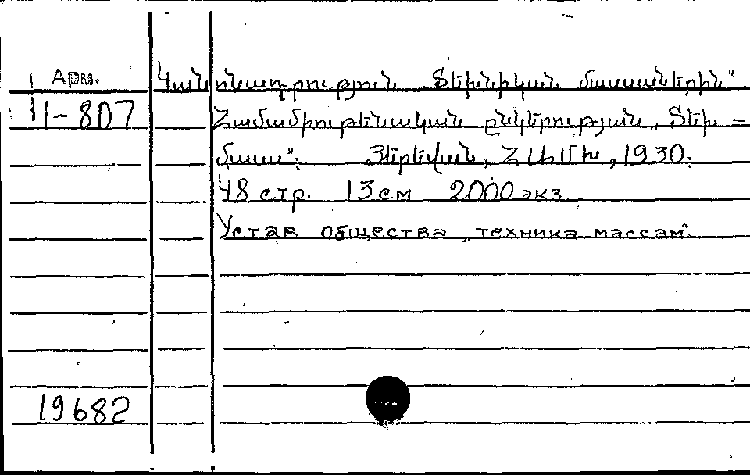 Арм.
Կանոնադրություն „Տեխնիկան մասսաներին"
II-807
Համամիութենական ընկերության, Տեխ-
մասս": Յերեվան, ՀԼԿԵՄ, 1930.
48 стр. 13 см 2000 экз.
Устав общества „техника массам".
19682